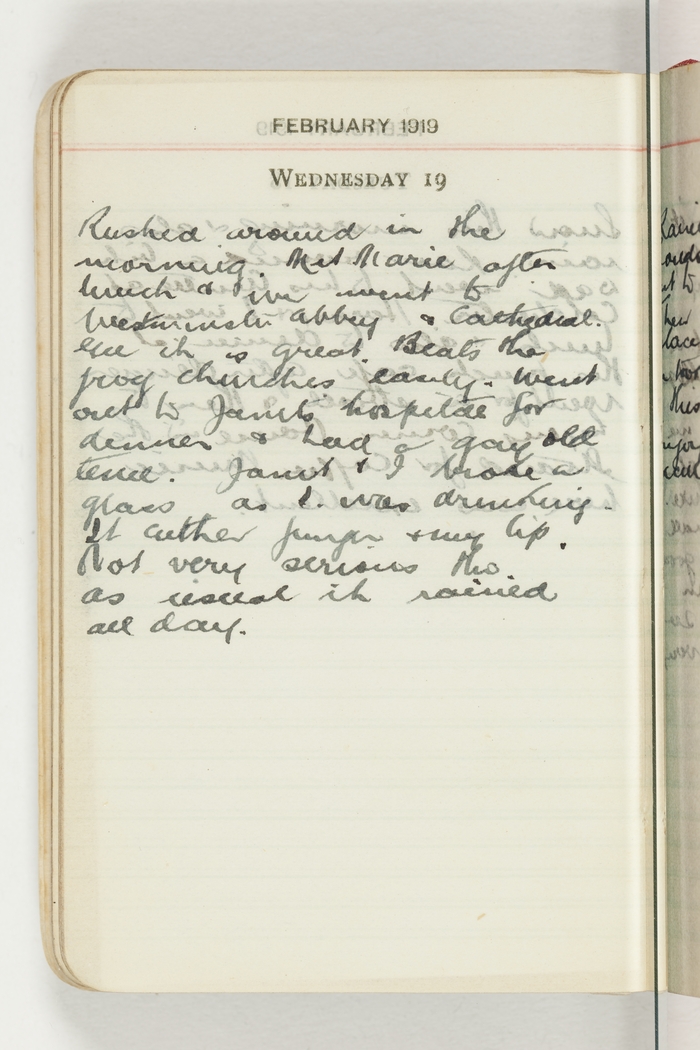 FEBRUARY 1919
WEDNESDAY 19
Rushed around in the
morning. Met Marie after
lunch & we went to
Westminster Abbey & Cathedral.
Gee it is great. Beats the
frog churches easily. Went
out to Janet's hospital for
dinner & had a gay old
time. Janet & I broke a
glass as I was drinking.
It cut her finger & my lip.
Not very serious tho
as usual it rained
all day.